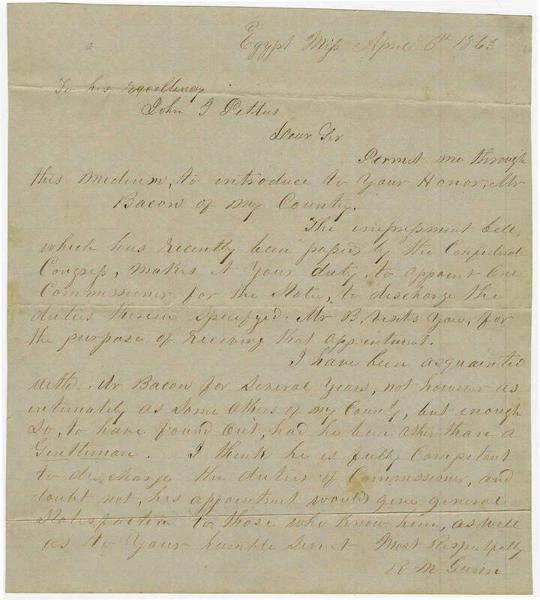 Egypt Miss April 6th 1863
To his Excellency
John J Pettus
Dear Sir
Permit me through
this medium, to introduce to Your Honor, Mr
Bacon of my County.
The impressment bill,
which has recently been passed by the Confederate
Congress, makes it your duty to appoint one
Commissioner for the State, to discharge the
duties therein specifyed. Mr B. visits You, for
the purpose of receiving that appointment.
I have been acquainted
with Mr Bacon for several years, not however as
intimately as some others of my County, but enough
so, to have found out, had he been other than a
Gentleman. I think he is fully Competent
to discharge the duties of Commissioner, and
doubt not, his appointment would give general
Satisfaction to those who know him, as well
as to Your humble Servt Most Respectfully
R M